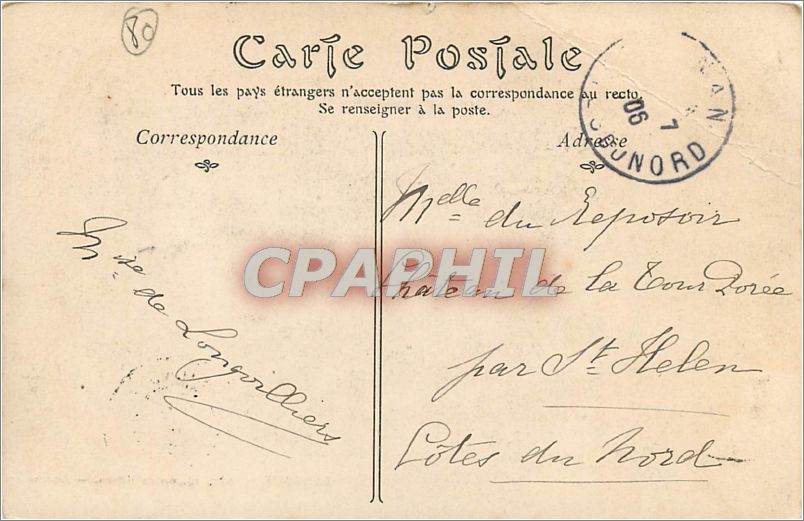 80
Carte Postale
Tous les pays étrangers n'acceptent pas la correspondance au recto.
Se renseigner à la poste.
Correspondance
Adresse
NAN
7
06
DU NORD
CPAPHIL
Mise de Longvilliers
Melle du Reposoir
Château de la Tour Dorée
par St Helen
Côtes du Nord